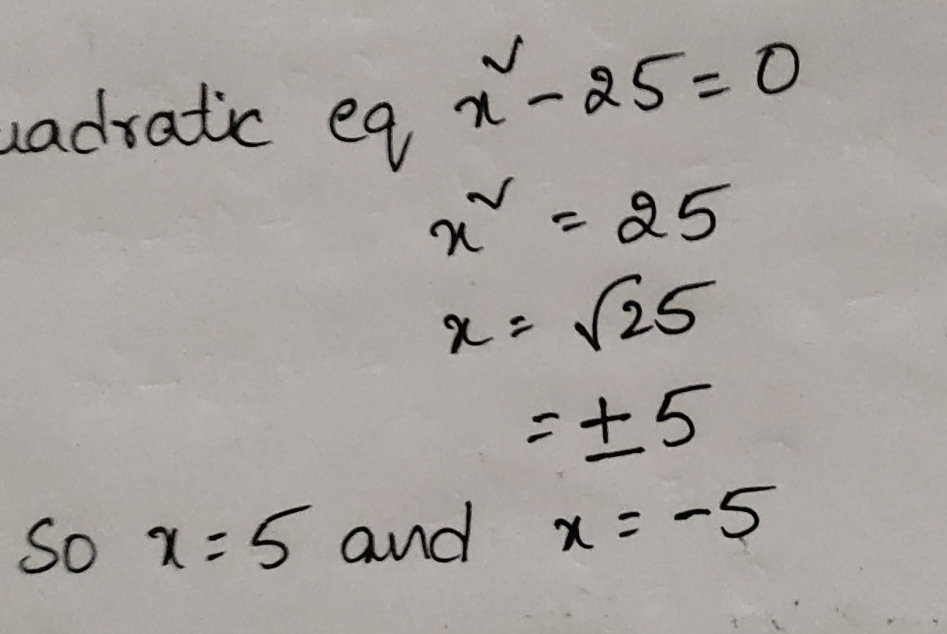 uadratic eq x² - 25 = 0
x² = 25
x = √25
= ± 5
So x = 5 and x = -5